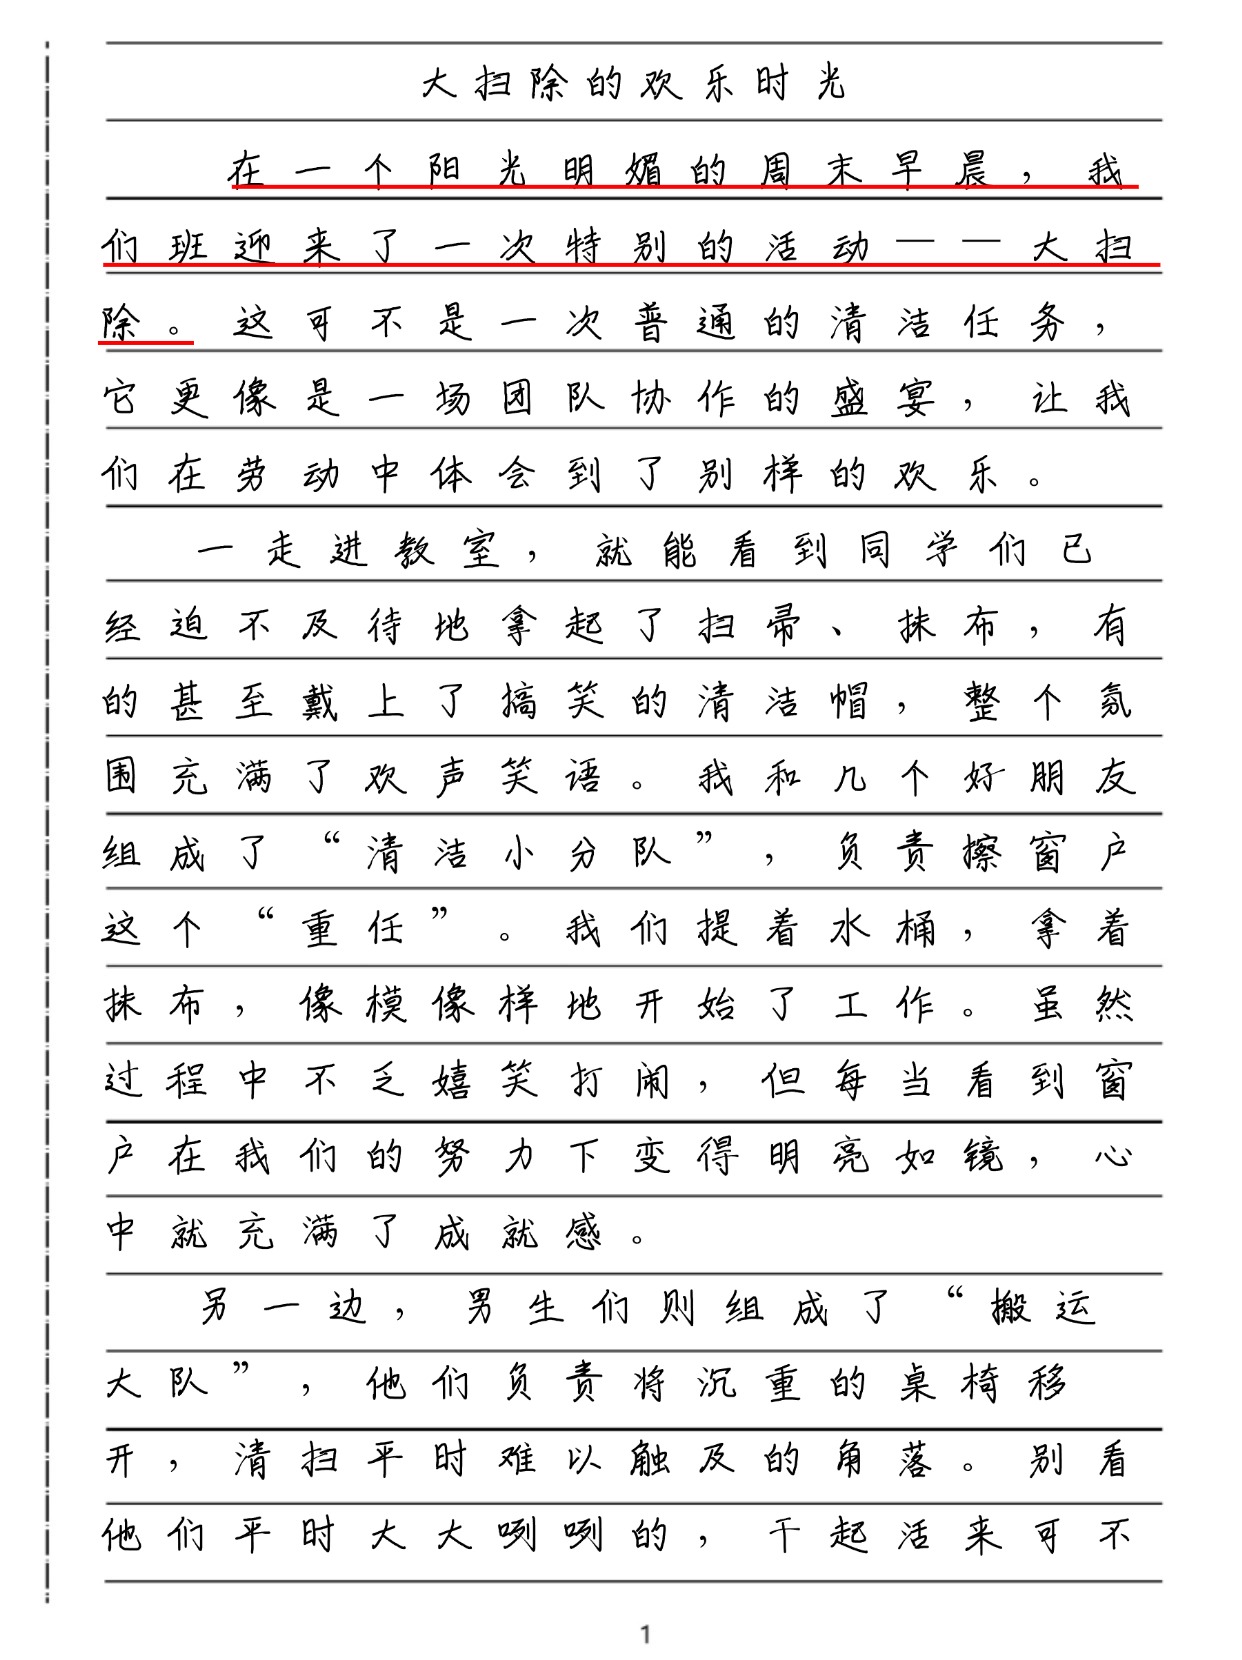 大扫除的欢乐时光
在一个阳光明媚的周末早晨，我
们班迎来了一次特别的活动——大扫
除。这可不是一次普通的清洁任务，
它更像是一场团队协作的盛宴，让我
们在劳动中体会到了别样的欢乐。
一走进教室，就能看到同学们已
经迫不及待地拿起了扫帚、抹布，有
的甚至戴上了搞笑的清洁帽，整个氛
围充满了欢声笑语。我和几个好朋友
组成了“清洁小分队”，负责擦窗户
这个“重任”。我们提着水桶，拿着
抹布，像模像样地开始了工作。虽然
过程中不乏嬉笑打闹，但每当看到窗
户在我们的努力下变得明亮如镜，心
中就充满了成就感。
另一边，男生们则组成了“搬运
大队”，他们负责将沉重的桌椅移
开，清扫平时难以触及的角落。别看
他们平时大大咧咧的，干起活来可不
1